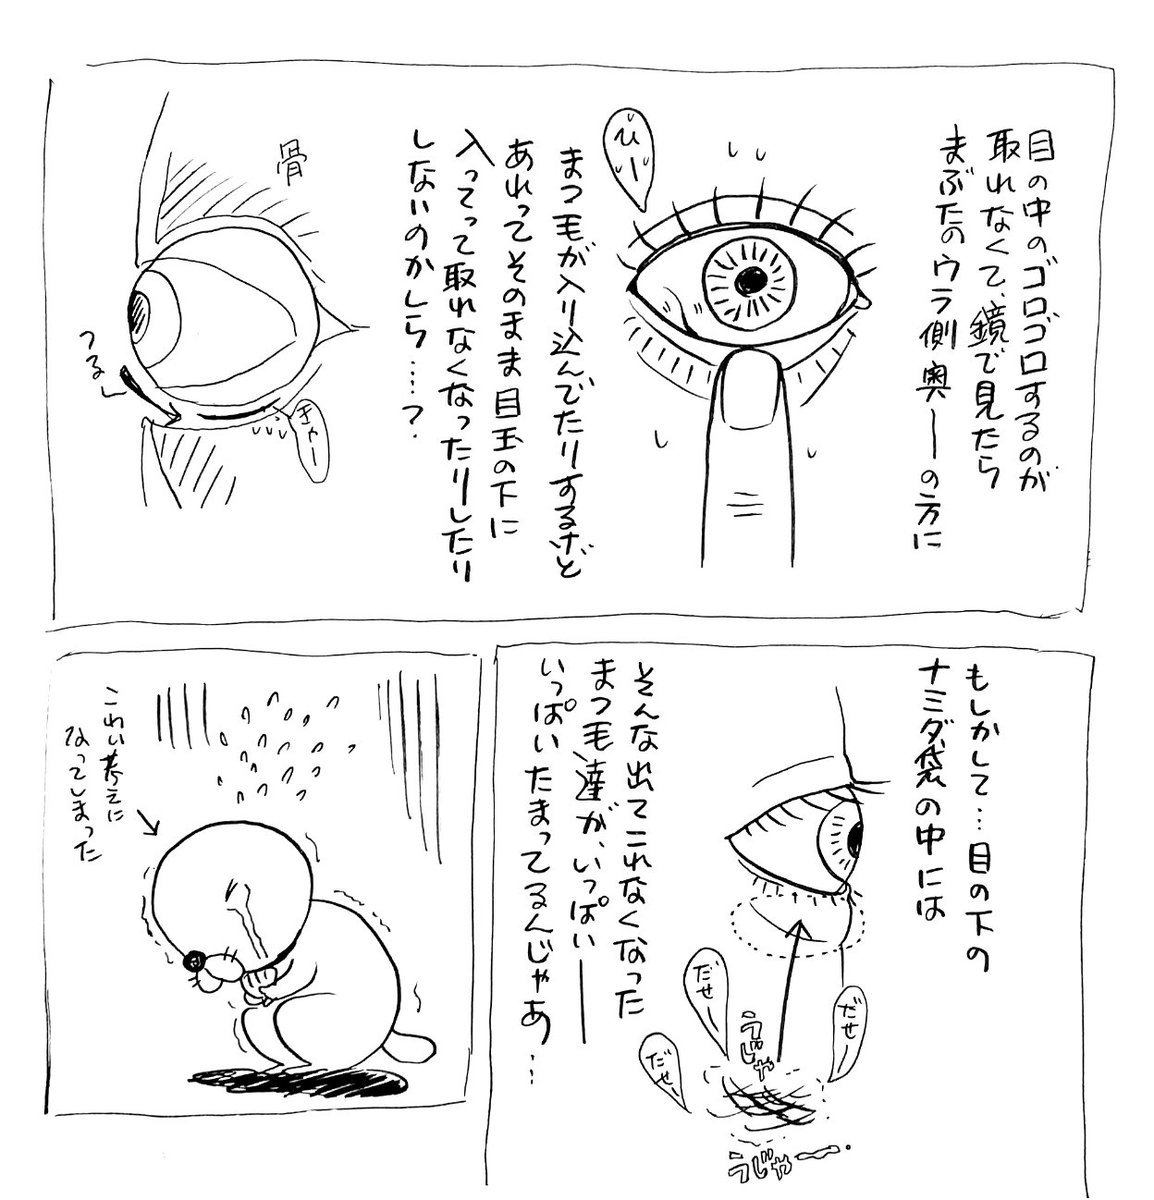 目の中のゴロゴロするのが
取れなくて、鏡で見たら
まぶたのウラ側奥ーの方に
ひー
まつ毛が入り込んでたりするけど
あれってそのまま目玉の下に
入ってって取れなくなったりしたり
しないのかしら…?
骨
つるーん
きゃー
もしかして…目の下の
ナミダ袋の中には
そんな出てこれなくなった
まつ毛達が、いっぱいーー
いっぱいたまってるんじゃあ…
だせー
だせー
だせー
うじゃ
うじゃー
こわい考えに
なってしまった